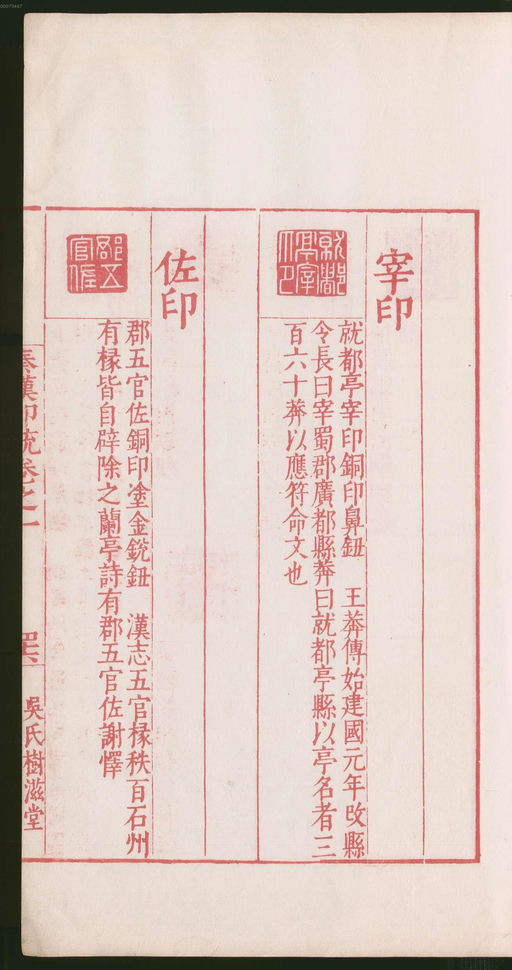 宰印
就都亭宰印銅印鼻鈕　王莽傳始建國元年改縣
令長曰宰蜀郡廣都縣莽曰就都亭縣以亭名者三
百六十莽以應符命文也
就都
亭宰
印
佐印
郡五官佐銅印塗金銳鈕　漢志五官椽秩百石州
有椽皆自辟除之蘭亭詩有郡五官佐謝懌
郡五
官佐
秦漢印統卷之一
吳氏樹滋堂
00079467